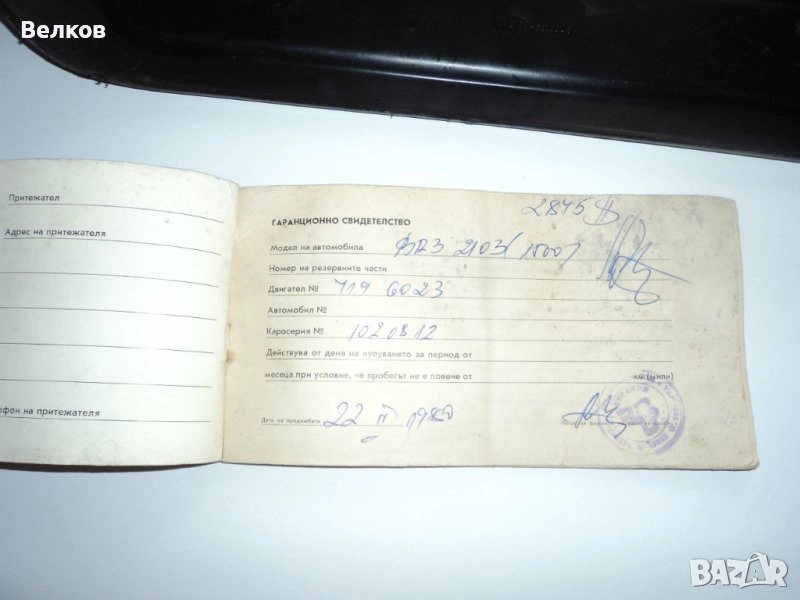 Велков
Притежател
Адрес на притежателя
ефон на притежателя
2845
ГАРАНЦИОННО СВИДЕТЕЛСТВО
Модел на автомобила ВАЗ 2103 (1500)
Номер на резервните части
Двигател № 719 6023
Автомобил №
Каросерия № 1020812
Действува от деня на чупуването за период от
месеца при условие, че пробегът не е повече от км (мили)
Дата на продажбата 22 II 1980
BAZAR